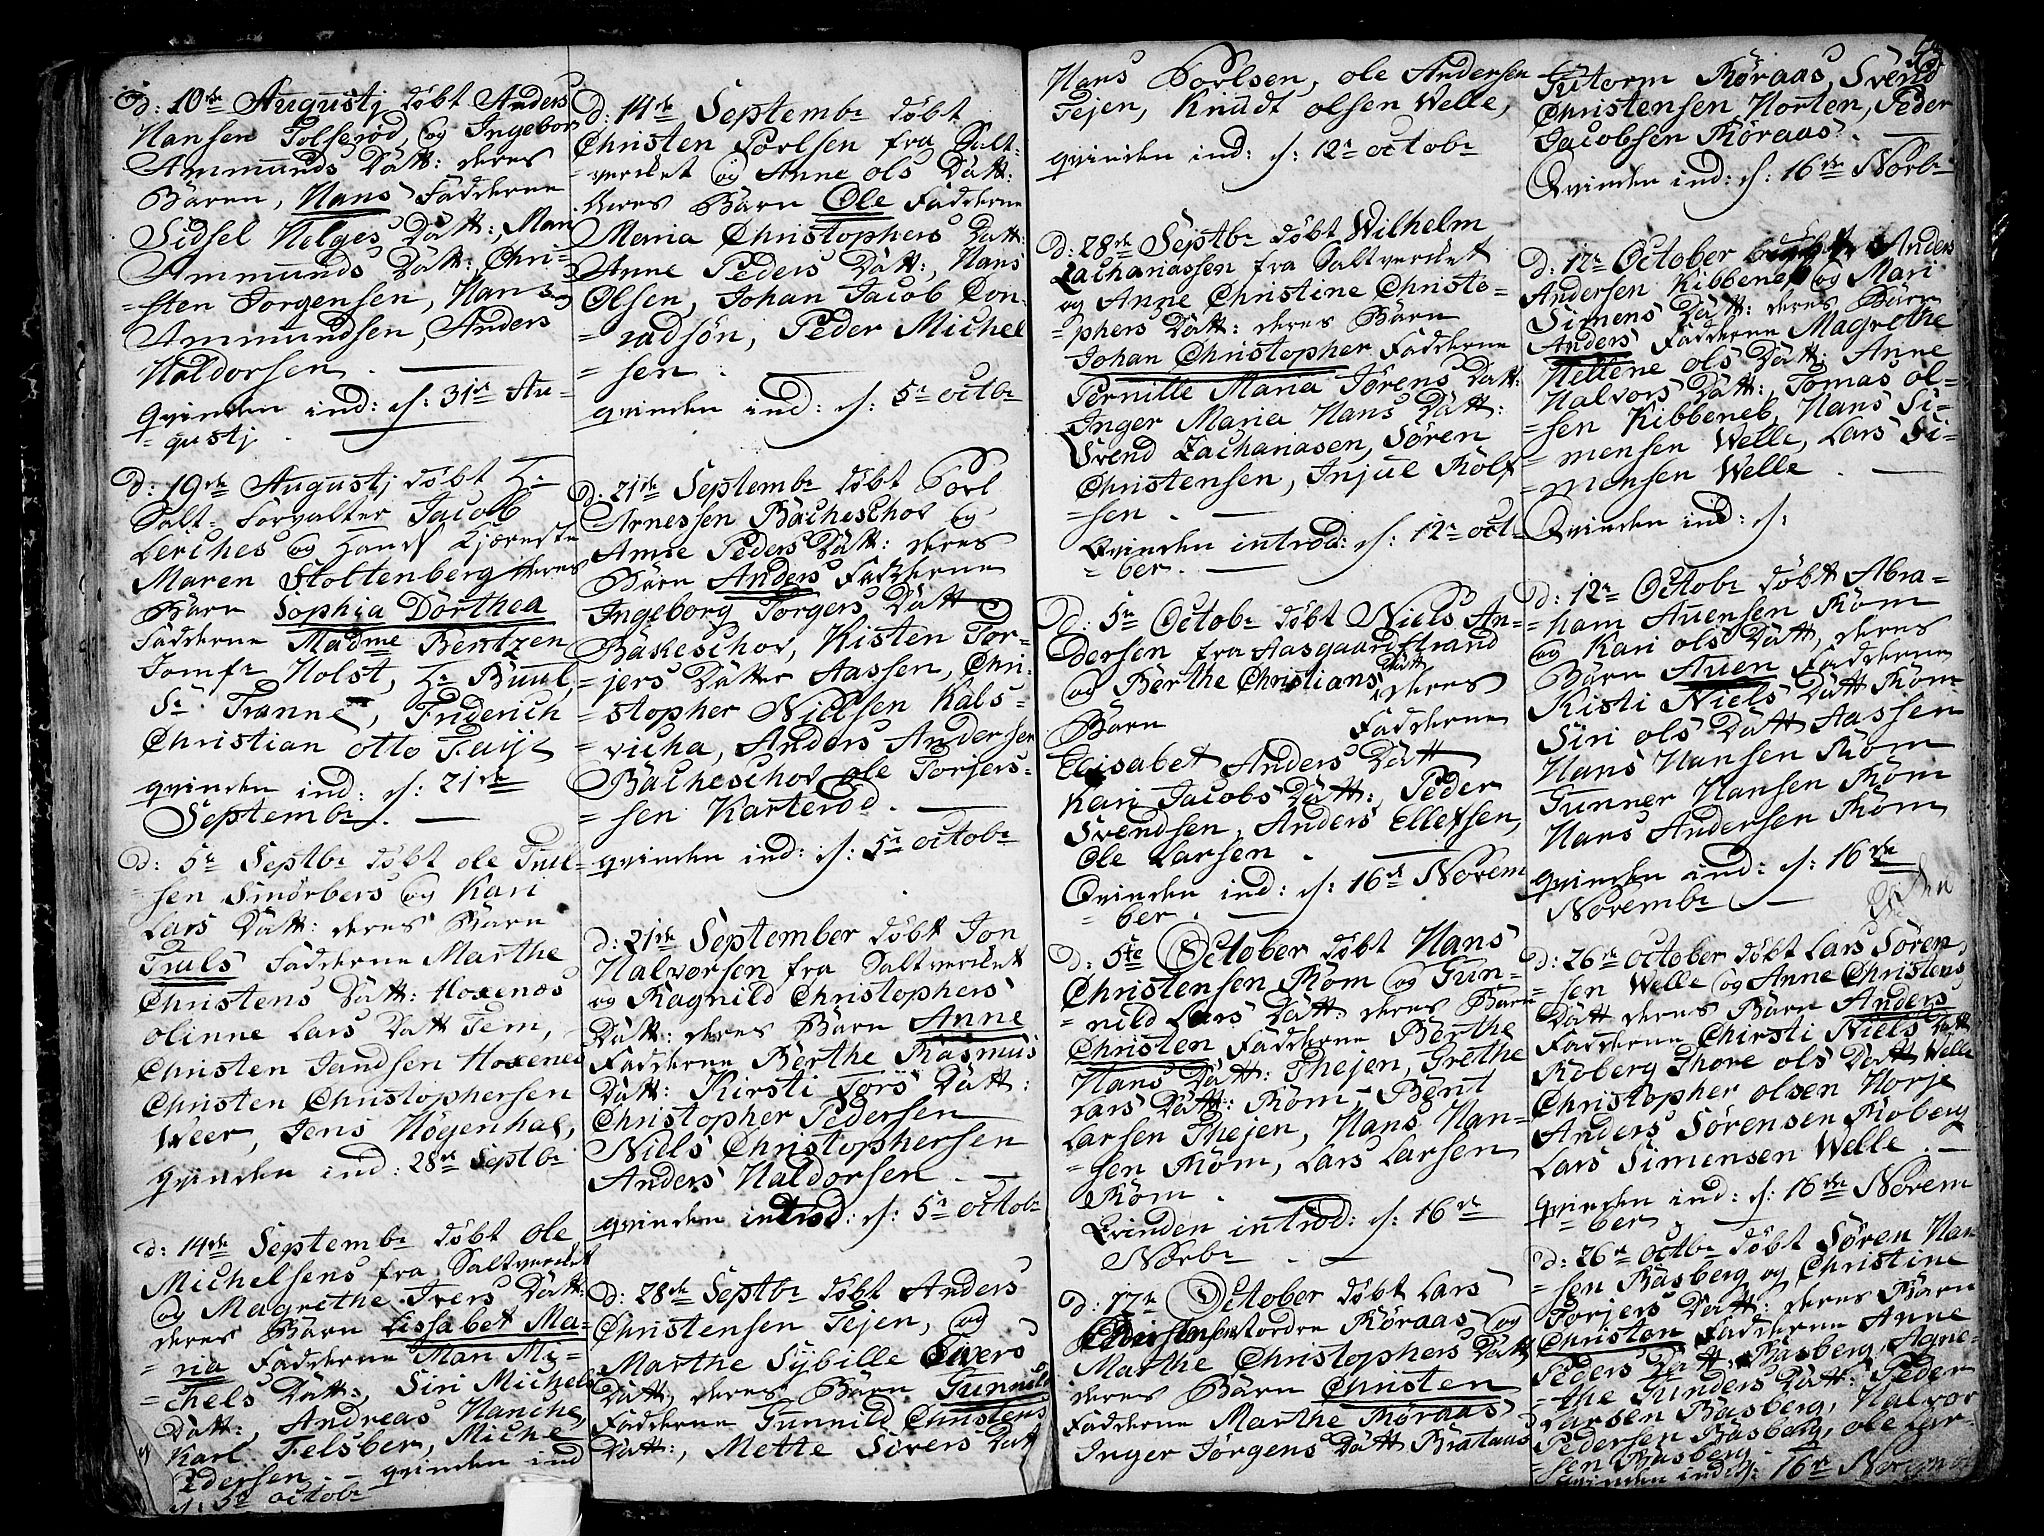 d: 10de Augustj döbt Anders
Hansen Tolserød og Ingebor
Ammunds Dätt: deres
Bären, Hans Fädderne
Sidsel Helges Dätt:, Mari
Ammunds Dätt: Chri-
-sten Jorgensen, Hans
Ammundsen, Anders
Haldorsen.
qvinden ind: d: 31te Au-
-gustj.
d: 19de Augustj döbt Hr
Salt-Forvalter Jacob
Lerches og Hans Kjæreste
Maren Stoltenberg deres
Barn Sophia Dorthea
Fädderne Madme Bentzen
Jomfr Holst, Hr Buul,
Sr Tranne, Friderich
Christian otto Faÿe
qvinden ind: d: 21de
Septembr.
d: 5te Septbr döbt ole Trul-
-sen Smörberg og Kari
Lars Dätt: deres Barn
Truls Fädderne Marthe
Christens Dätt: Hoxenæs
olinne Lars Datt Tem,
Christen Jandsen Hoxenes
Christen Christophersen
Weer, Jens Högenhal,
qvinden ind: 28de Septbr
d: 14de Septembr döbt Ole
Michelsens fra Saltverket
og Magrethe Ivers Dätt:
deres Barn Lissabet Ma-
-ria Fädderne Mari Mi-
-chels Dätt:, Siri Michels
Dätt:, Andreas Hanche,
Karl Felsber, Michel
Pedersen. - qvinden ind
d: 5te octobr
d: 14de Septembr döbt
Christen Porlsen fra Salt-
-verket og Anne ols Dätt:
deres Barn Ole Fädderne
Maria Christophers Datt:
Anne Peders Datt:, Hans
Olsen, Johan Jacob Con-
-radsön, Peder Michel
-sen.
qvinden ind: d: 5te octobr
d: 21de Septembr döbt Porl
Arnessen Bacheschov og
Anne Peders Dätt: deres
Barn Anders Fädderne
Ingeborg Torgers Datt
Bakeschov, Kisten Tor-
-jers Datter Aassen, Chri-
-stopher Nielsen Kals-
-vicha, Anders Andersen
Bacheschov ole Torgers-
-sen Karterød.
qvinden ind: d: 5te octobr
d: 21de September döbt Jon
Halvorsen fra Saltverket
og Ragnild Christophers
Dätt: deres Barn Anne
Fadderne Berthe Rasmus
Dätt: Kirsti Tors Dätt:
Christopher Pedersen
Niels Christophersen
Anders Haldorsen.
qvinden introd: d: 5te octobr
d: 28de Septbr döbt Anders
Christensen Tejen, og
Marthe Sybille Sivers
Dätt, deres Barn Gunnild
Fädderne Gunnild Christens
Dätt:, Mette Sörens Datt
Hans Porlsen, ole Andersen
Tejen, Knudt olsen Welle,
qvinden ind: d: 12te octobr
d: 28de Septbr döbt Wilhelm
Zachariassen fra Saltverket
og Anne Christine Christo-
-phers Datt: deres Barn
Johan Christopher Fadderne
Pernille Maria Jörens Datt:
Inger Maria Hans Datt:
Svend Zachariasen, Sören
Christensen, Injul Rolf
-sen.
Qvinden introd: d: 12te octo-
-ber.
d: 5te Octobr döbt Niels An-
dersen fra Aasgaardstrand
og Berthe Christians Datt
deres
Barn Fädderne
Elisabet Anders Datt
Kari Jacobs Dätt:, Peder
Svendsen, Anders Ellefsen,
Ole Larsen.
Qvinden ind: d: 16de Novem
-ber.
d: 5te October döbt Hans
Christensen Röm og Gun-
-nild Lars Datt deres Barn
Christen, Fädderne Berthe
Hans Dätt: Thejen, Grethe
Lars Datt: Röm, Bent
Larsen Thejen, Hans Han-
-sen Röm, Lars Larsen
Röm.
Qvinden introd: d: 16de
Novbr
d: 12te October döbt Lars
Röraas og
Marthe Christophers Datt
deres Barn Christen
Fadderne Marthe Röraas
Inger Jörgens Datt Brataas
Gutorm Röraas, Svend
Christensen Horten, Peder
Jacobsen Röraas.
Qvinden ind: d: 16de Novbr
d: 12te October döbt Anders
Andersen Kibbeneb og Mari
Simens Dätt: deres Barn
Anders Fadderne Magrethe
Hellene ols Datt: Anne
Halvors Datt:, Tomas ol-
-sen Kibbeneb, Hans Si-
-mensen Welle, Lars Si-
-mensen Welle.
Qvinden ind: d:
d: 12te Octobr döbt Abra-
-ham Auensen Röm
og Kari ols Datt, deres
Barn Auen Fadderne
Kisti Niels Datt Röm
Siri ols Datt Aassen
Hans Hansen Röm
Gunner Hansen Röm
Hans Andersen Röm
qvinden ind: d: 16de
Novembr
d: 26de october döbt Lars Sören
-sen Welle og Anne Christens
Datt deres Barn Anders
Fadderne Chirsti Niels Datt
Roberg Thore ols Datt Welle
Christopher olsen Horje
Anders Sörensen Roberg
Lars Simensen Welle.
qvinden ind: d: 16de Novem
-ber
d: 26de octbr döbt Sören Han
-sen Basberg og Christine
Torjers Datt: deres Barn
Christen Fadderne Anne
Peders Datt, Basberg, Agne-
-the Gunders Datt: Peder
Larsen Basberg, Halvor
Pedersen Basberg, ole Lar-
-sen Basberg.
qvinden ind: d: 16de November